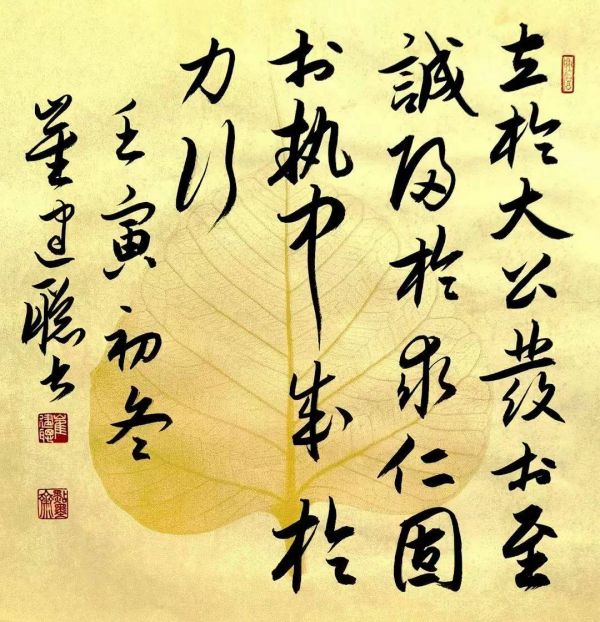 立於大公發於至
誠歸於求仁固
於執中成於
力行
壬寅初冬
崔建聰書
崔建聰